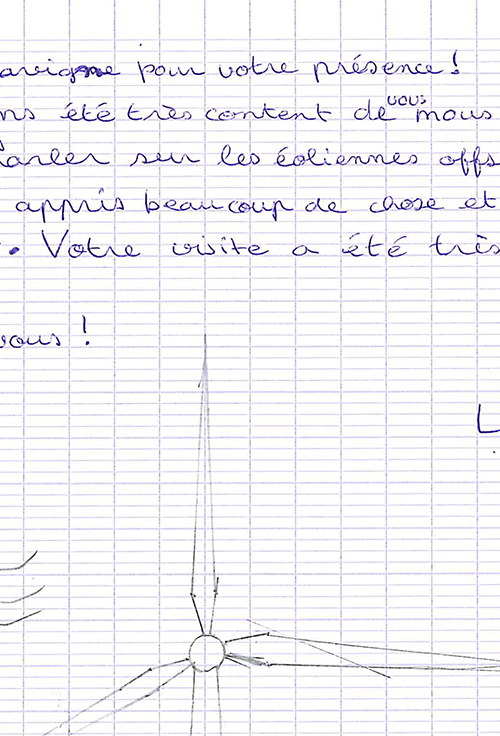 pour votre présence !
ns été très content de vous nous
arler sur les éoliennes offs
appris beaucoup de chose et
. Votre visite a été très
vous !
L